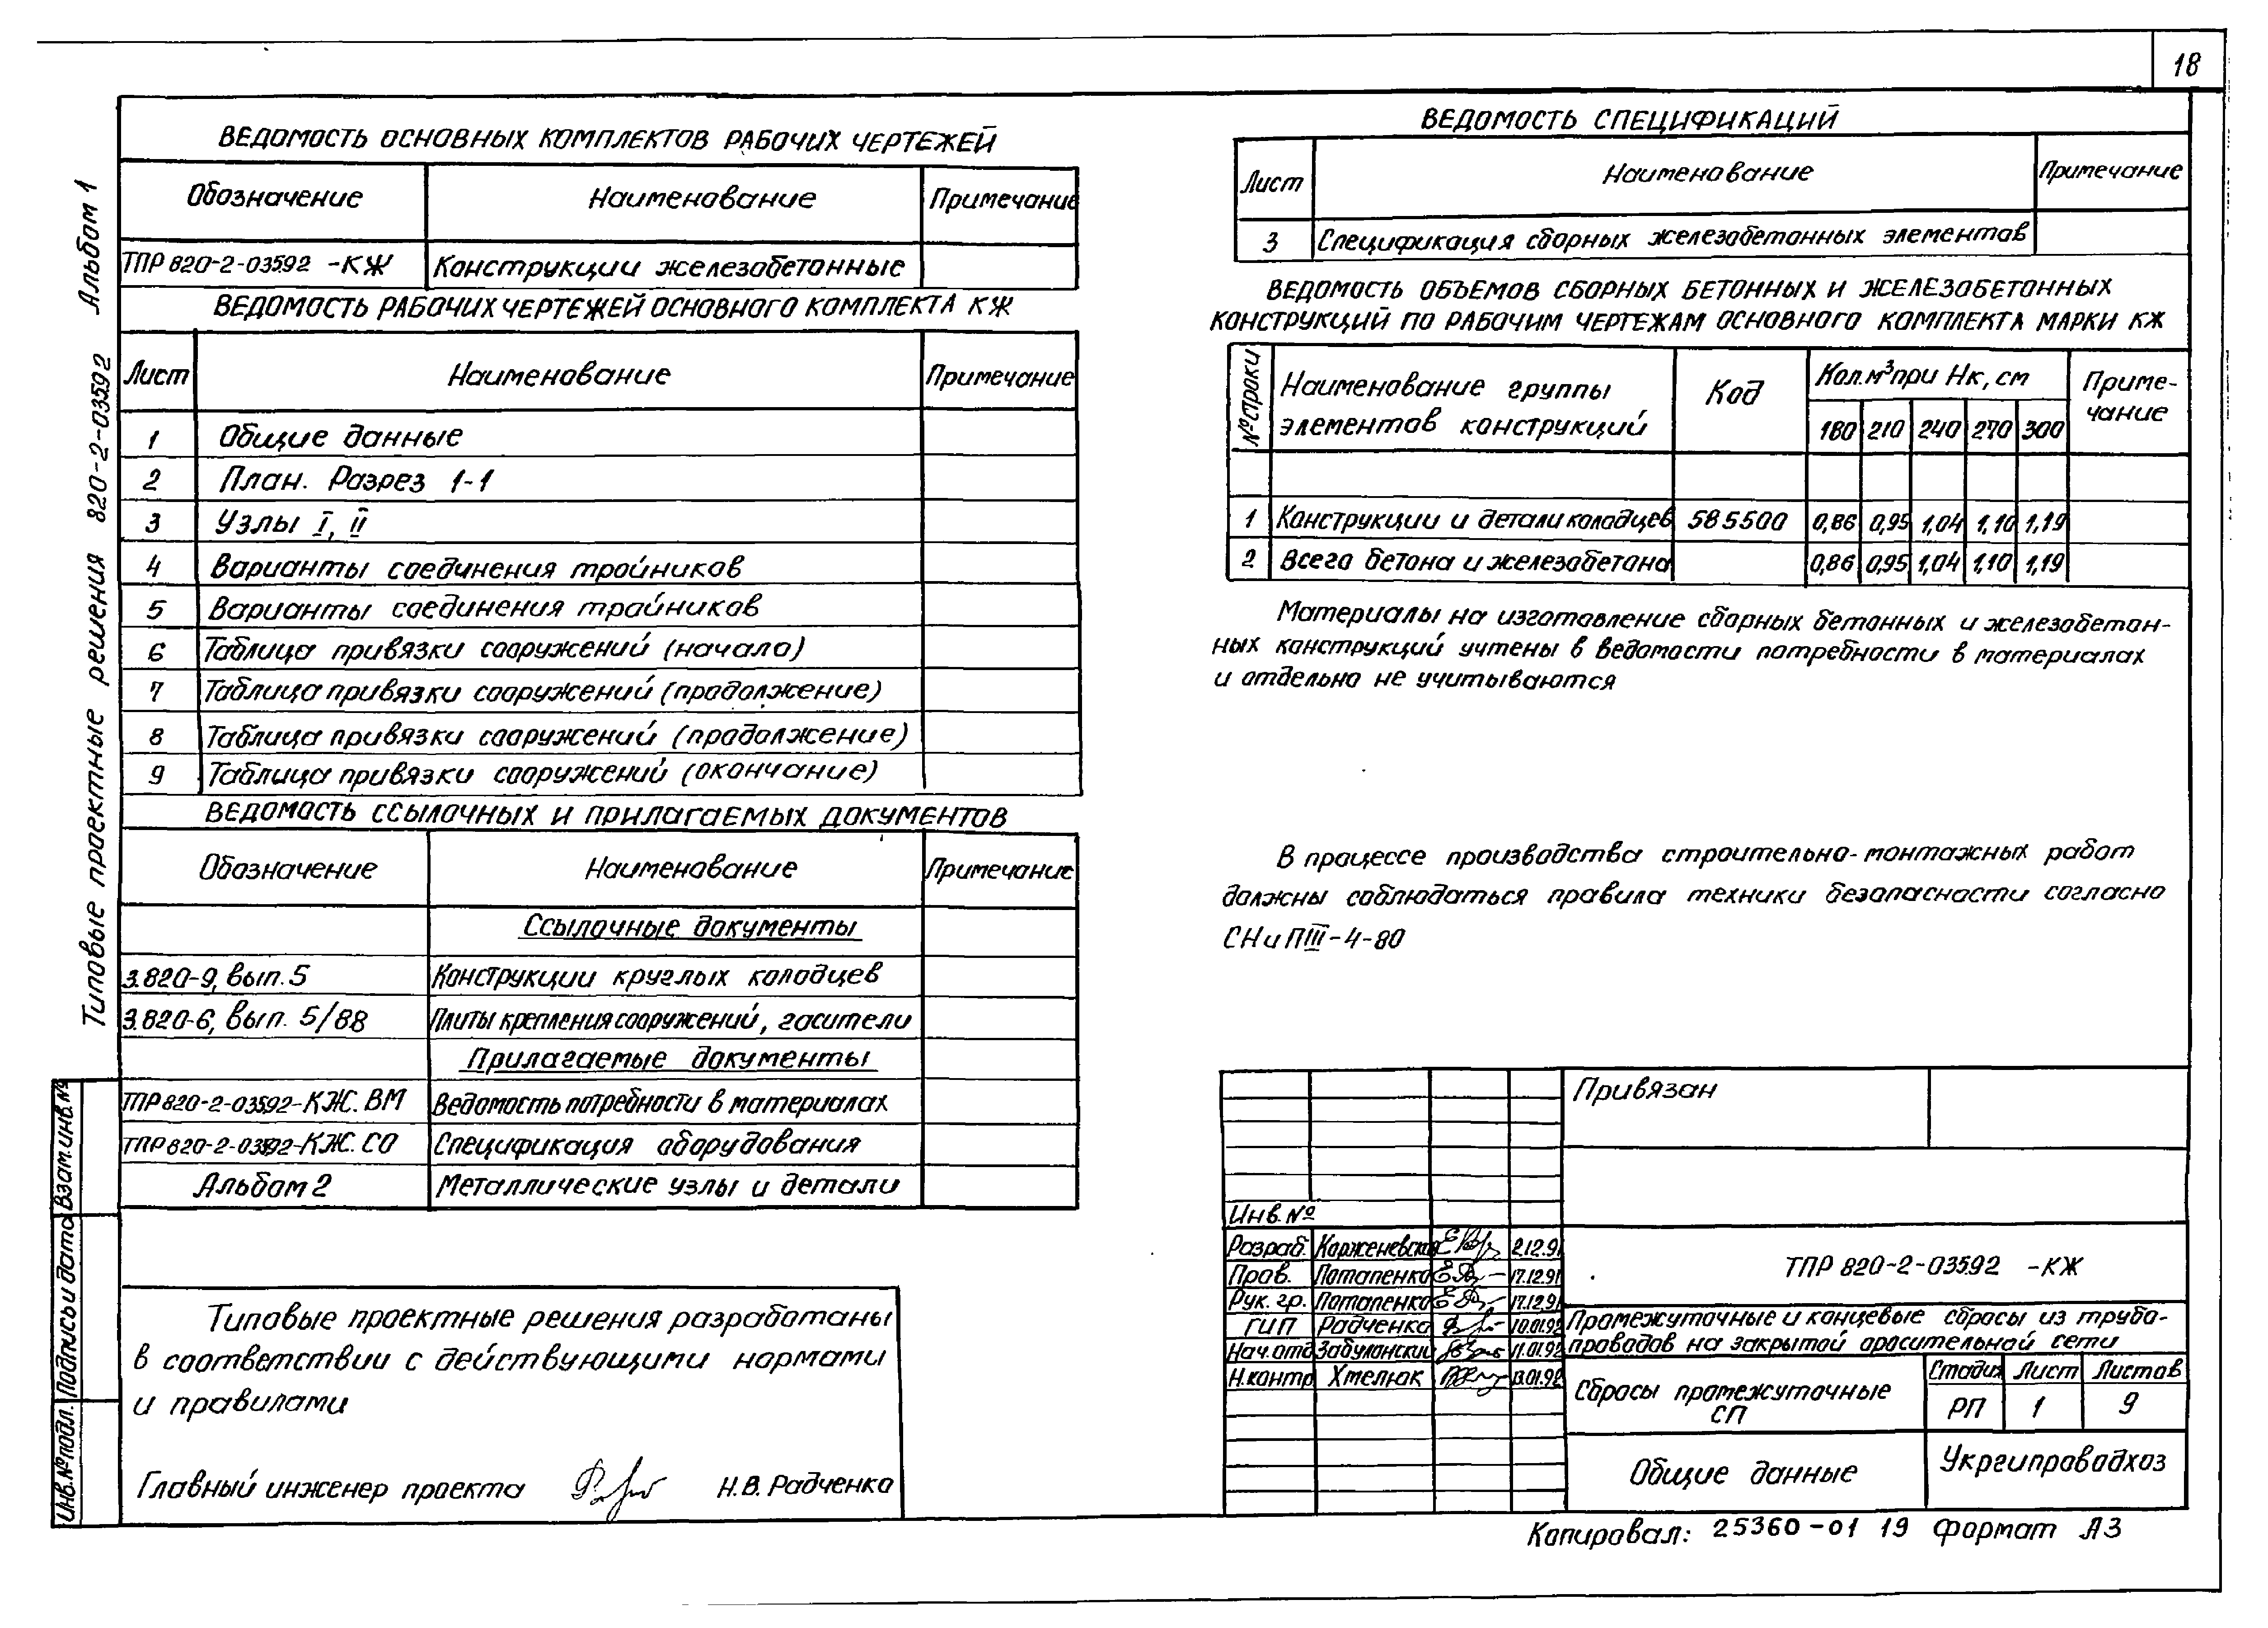 18
Типовые проектные решения 820-2-03592 Альбом 1
ВЕДОМОСТЬ ОСНОВНЫХ КОМПЛЕКТОВ РАБОЧИХ ЧЕРТЕЖЕЙ
Обозначение Наименование Примечание
ТПР 820-2-03592 -КЖ Конструкции железобетонные
ВЕДОМОСТЬ РАБОЧИХ ЧЕРТЕЖЕЙ ОСНОВНОГО КОМПЛЕКТА КЖ
Лист Наименование Примечание
1 Общие данные
2 План. Разрез 1-1
3 Узлы I, II
4 Варианты соединения тройников
5 Варианты соединения тройников
6 Таблица привязки сооружений (начало)
7 Таблица привязки сооружений (продолжение)
8 Таблица привязки сооружений (продолжение)
9 Таблица привязки сооружений (окончание)
ВЕДОМОСТЬ ССЫЛОЧНЫХ И ПРИЛАГАЕМЫХ ДОКУМЕНТОВ
Обозначение Наименование Примечание
Ссылочные документы
3.820-9, вып. 5 Конструкции круглых колодцев
3.820-6, вып. 5/88 Плиты крепления сооружений, гасители
Прилагаемые документы
ТПР 820-2-03592-КЖ. ВМ Ведомость потребности в материалах
ТПР 820-2-03592-КЖ. СО Спецификация оборудования
Альбом 2 Металлические узлы и детали
Типовые проектные решения разработаны
в соответствии с действующими нормами
и правилами
Главный инженер проекта Н.В. Радченко
Взам. инв. №
Подпись и дата
Инв. № подл.
ВЕДОМОСТЬ СПЕЦИФИКАЦИЙ
Лист Наименование Примечание
3 Спецификация сборных железобетонных элементов
ВЕДОМОСТЬ ОБЪЕМОВ СБОРНЫХ БЕТОННЫХ И ЖЕЛЕЗОБЕТОННЫХ
КОНСТРУКЦИЙ ПО РАБОЧИМ ЧЕРТЕЖАМ ОСНОВНОГО КОМПЛЕКТА МАРКИ КЖ
№ строки Наименование группы элементов конструкций Код Кол. м³ при Нк, см Приме-
чание
180 210 240 270 300
1 Конструкции и детали колодцев 585500 0,86 0,95 1,04 1,10 1,19
2 Всего бетона и железобетона 0,86 0,95 1,04 1,10 1,19
Материалы на изготовление сборных бетонных и железобетон-
ных конструкций учтены в ведомости потребности в материалах
и отдельно не учитываются
В процессе производства строительно-монтажных работ
должны соблюдаться правила техники безопасности согласно
СНиП III-4-80
Привязан
Инв. №
Разраб. Корженевская 2.12.91
Пров. Потапенко 17.12.91
Рук. гр. Потапенко 17.12.91
ГИП Радченко 10.01.92
Нач. отд Забуланский 11.01.92
Н.контр Хмелюк 13.01.92
ТПР 820-2-03592 -КЖ
Промежуточные и концевые сбросы из трубо-
проводов на закрытой оросительной сети
Сбросы промежуточные
СП
Стадия Лист Листов
РП 1 9
Общие данные
Укргипроводхоз
Копировал: 25360-01 19 Формат А3